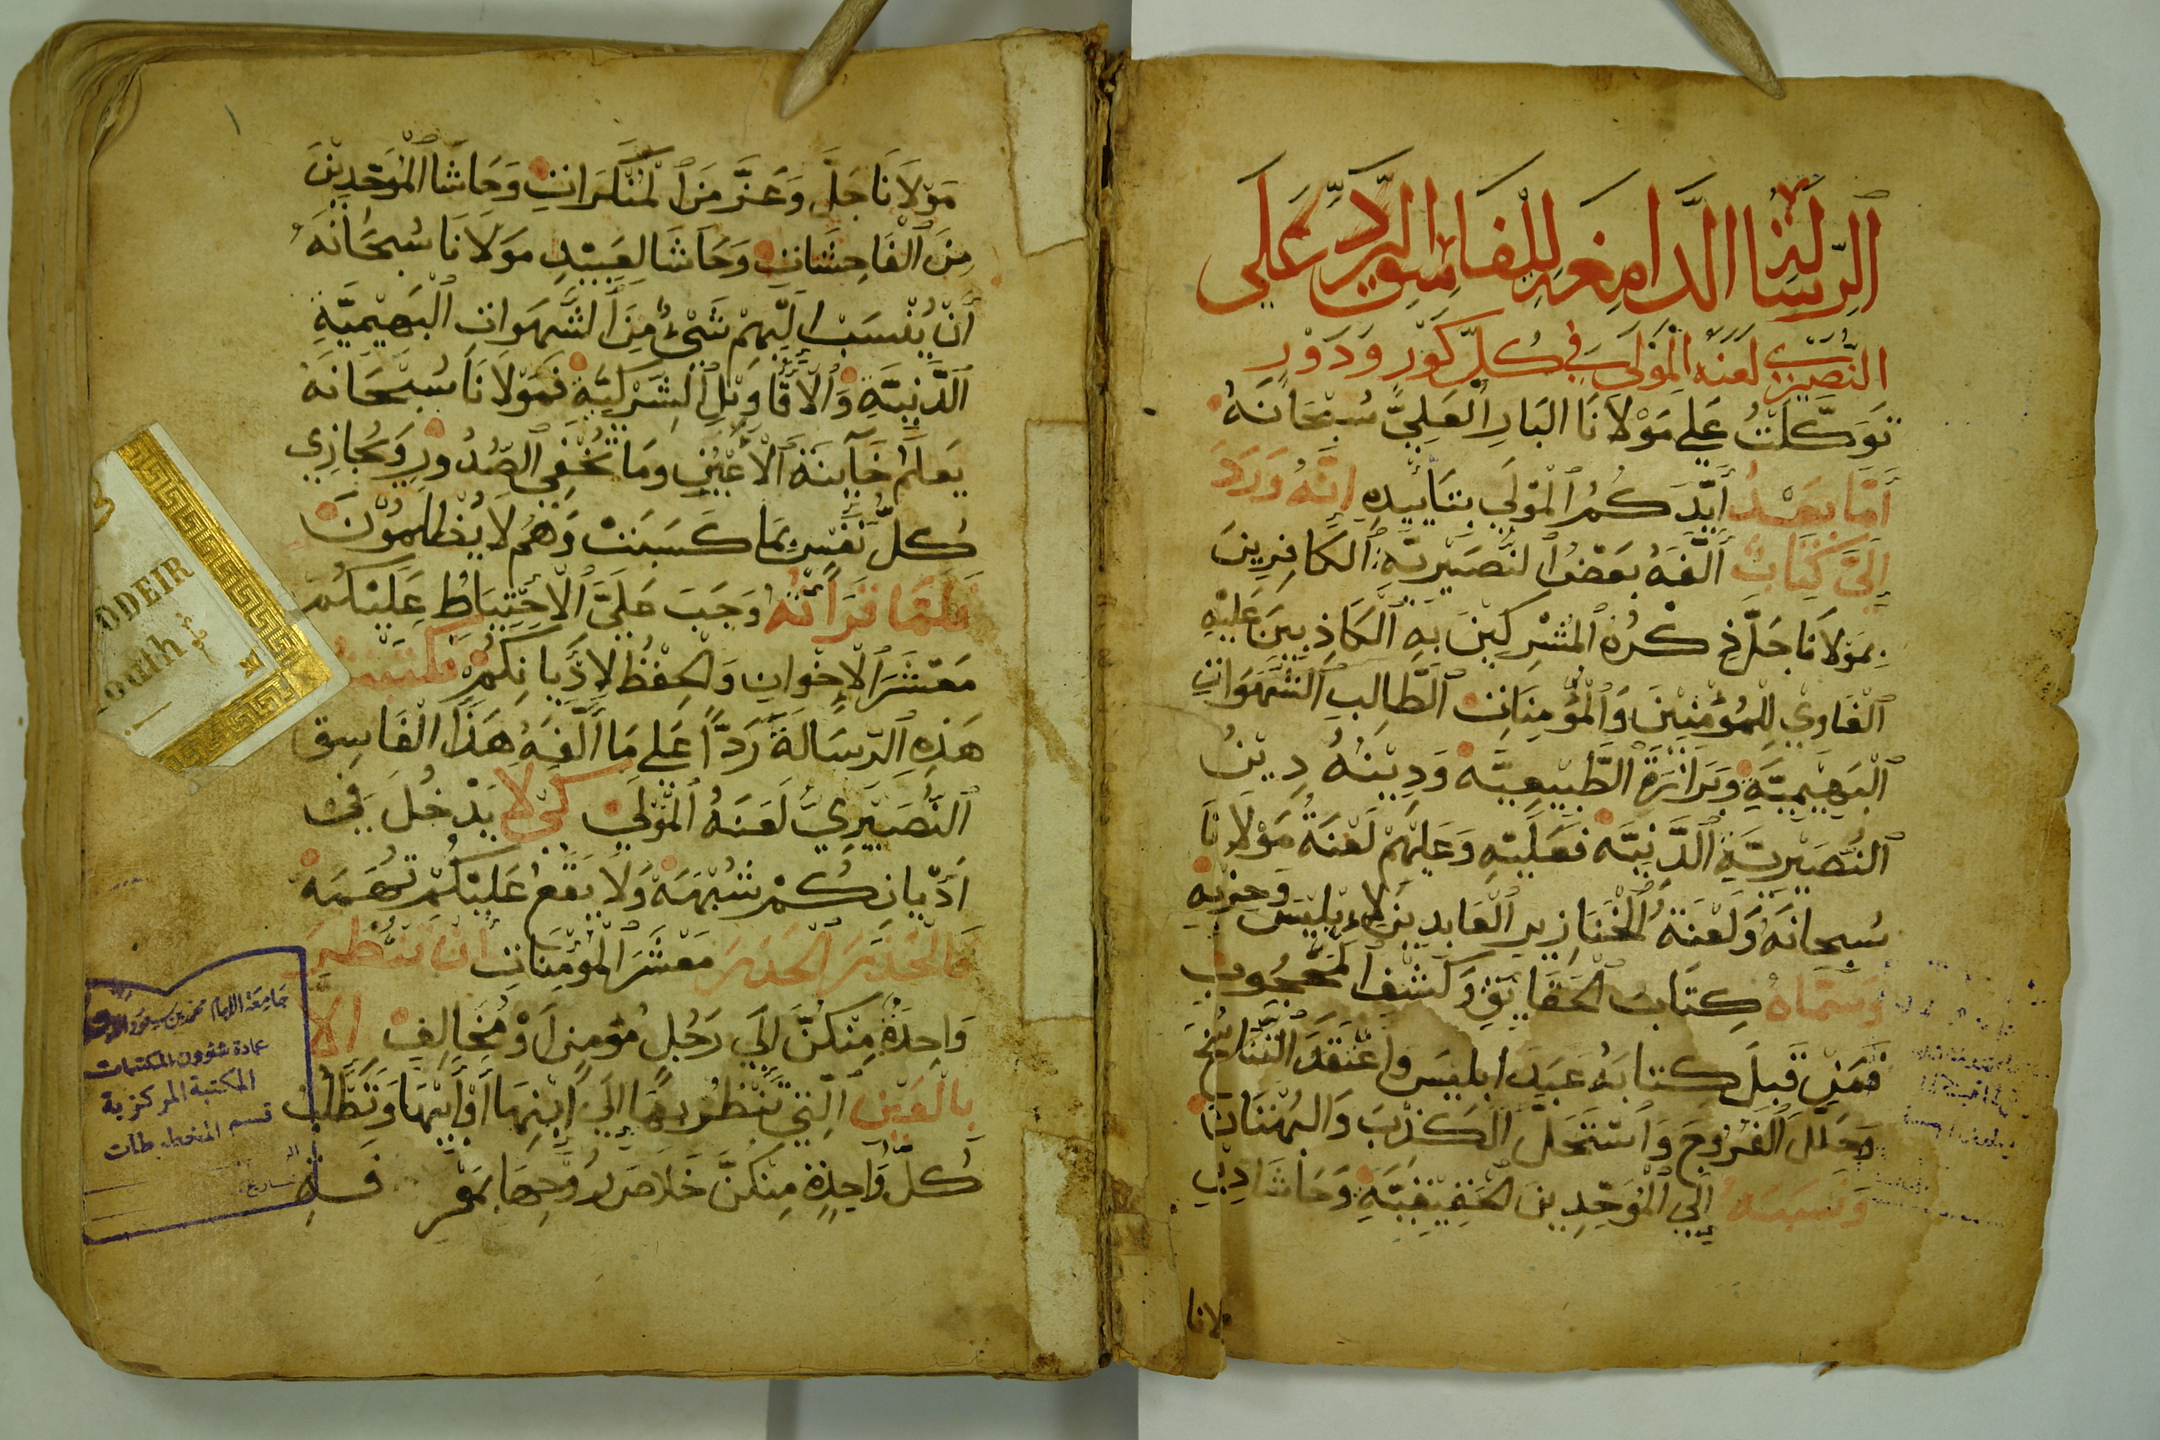 الرسالة الدامغة للفاسق الرد على
النصيري لعنه المولى في كل كور ودور
توكلت على مولانا البار العلي سبحانه
أما بعد أيدكم المولى بتأييده إنه ورد
إلي كتاب ألفه بعض النصيرية الكافرين
بمولانا جل ذكره المشركين به الكاذبين عليه
الغاوي للمؤمنين والمؤمنات الطالب الشهوات
البهيمية وبرازة الطبيعية ودينه دين
النصيرية الدنية فعليه وعليهم لعنة مولانا
سبحانه ولعنة الخنازير العابدين لإبليس وحزبه
وسماه كتاب الحقايق وكشف المحجوب
فمن قبل كتابه عبد ابليس واعتقد التناسخ
وحلل الفروج واستحل الكذب والبهتان
ونسبه إلى الموحدين الحقيقية وحاشا دين
لانا
مولانا جل وعز من المنكرات وحاشا الموحدين
من الفاحشات وحاشا لعبيد مولانا سبحانه
أن ينسب اليهم شيء من الشهوات البهيمية
الدنية والأقاويل الشركية فمولانا سبحانه
يعلم خآينة الأعين وما تخفي الصدور ويجازي
كل نفس بما كسبت وهم لا يظلمون
فلما قرأته وجب علي الاحتياط عليكم
معشر الاخوان والحفظ لاديانكم فكتبت
هذه الرسالة ردا على ما ألفه هذا الفاسق
النصيري لعنه المولى كي لا يدخل في
أديانكم شبهة ولا يقع عليكم تهمة
فالحذر الحذر معشر المؤمنات أن تنظر
واحدة منكن إلى رجل مؤمن أو مخالف الا
بالعين التي تنظر بها إلى ابنها أو أبيها وتطلب
كل واحدة منكن خلاص روحها بمعر فـه
ODEIR
outh
جامعة الإمام محمد بن سعود الإسلامية
عمادة شؤون المكتبات
المكتبة المركزية
قسم المخطوطات